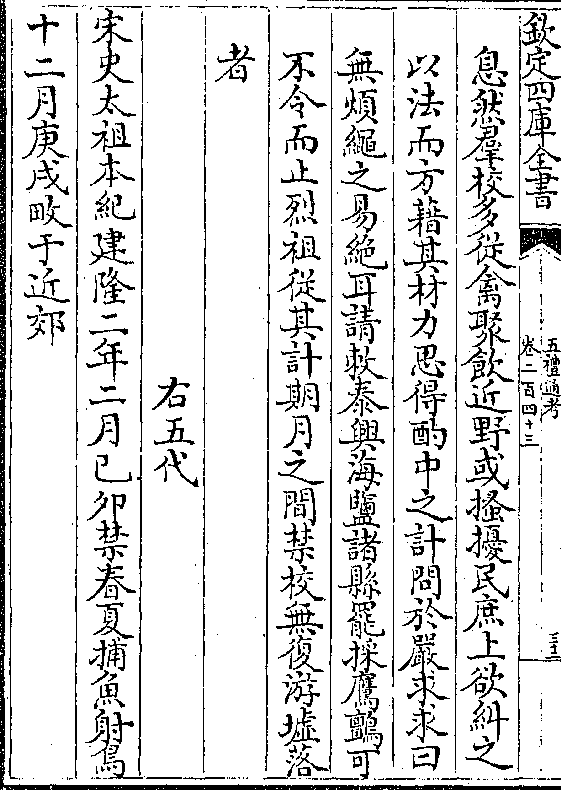 欽定四庫全書
五禮通考
卷二百四十三
三十三
息然羣校多從禽聚飲近野或搔擾民庶上欲糾之
以法而方藉其材力思得酌中之計問於嚴求求曰
無煩繩之易絶耳請敕泰興海鹽諸縣罷採鷹鸇可
不令而止烈祖從其計期月之間禁校無復游墟落
者
右五代
宋史太祖本紀建隆二年二月己卯禁春夏捕魚射鳥
十二月庚戌畋于近郊